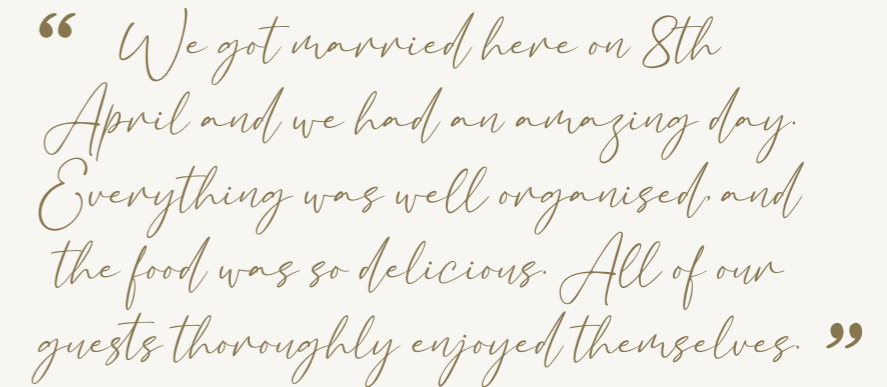 “ We got married here on 8th
April and we had an amazing day.
Everything was well organised, and
the food was so delicious. All of our
guests thoroughly enjoyed themselves. ”